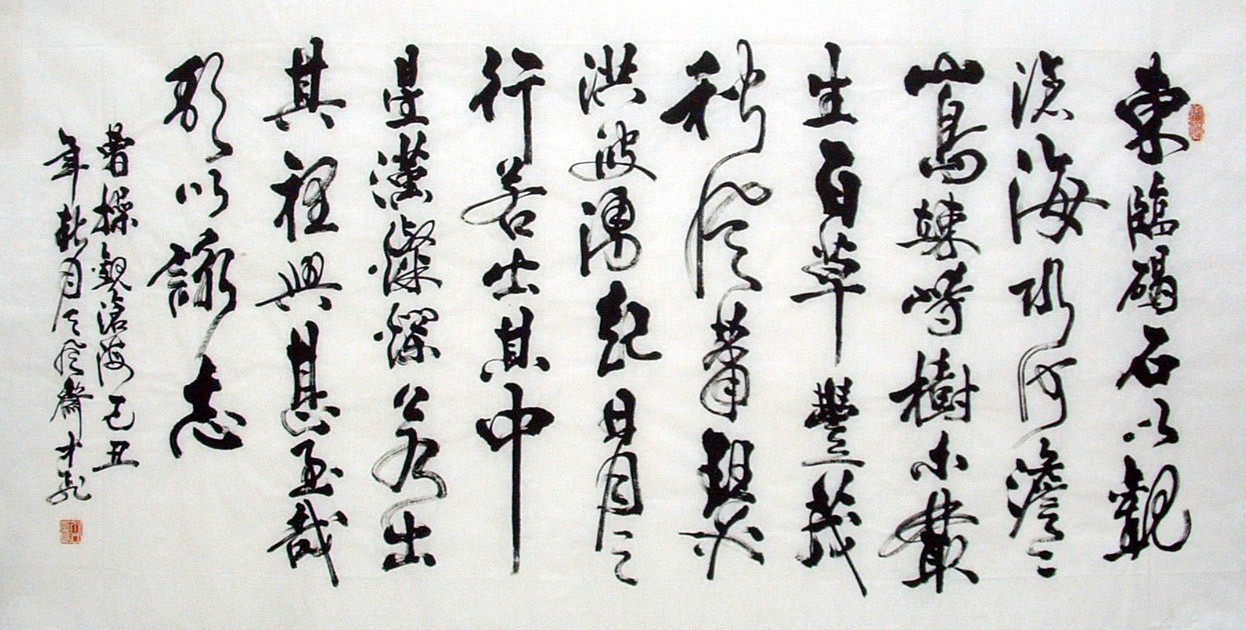 東臨碣石以觀
滄海水何澹〻
山島竦峙樹木叢
生百草豐茂
秋風蕭瑟
洪波湧起日月之
行若出其中
星漢燦爛若出
其裡甚至哉
歌以詠志
曹操觀滄海己丑
年秋月天風齋才